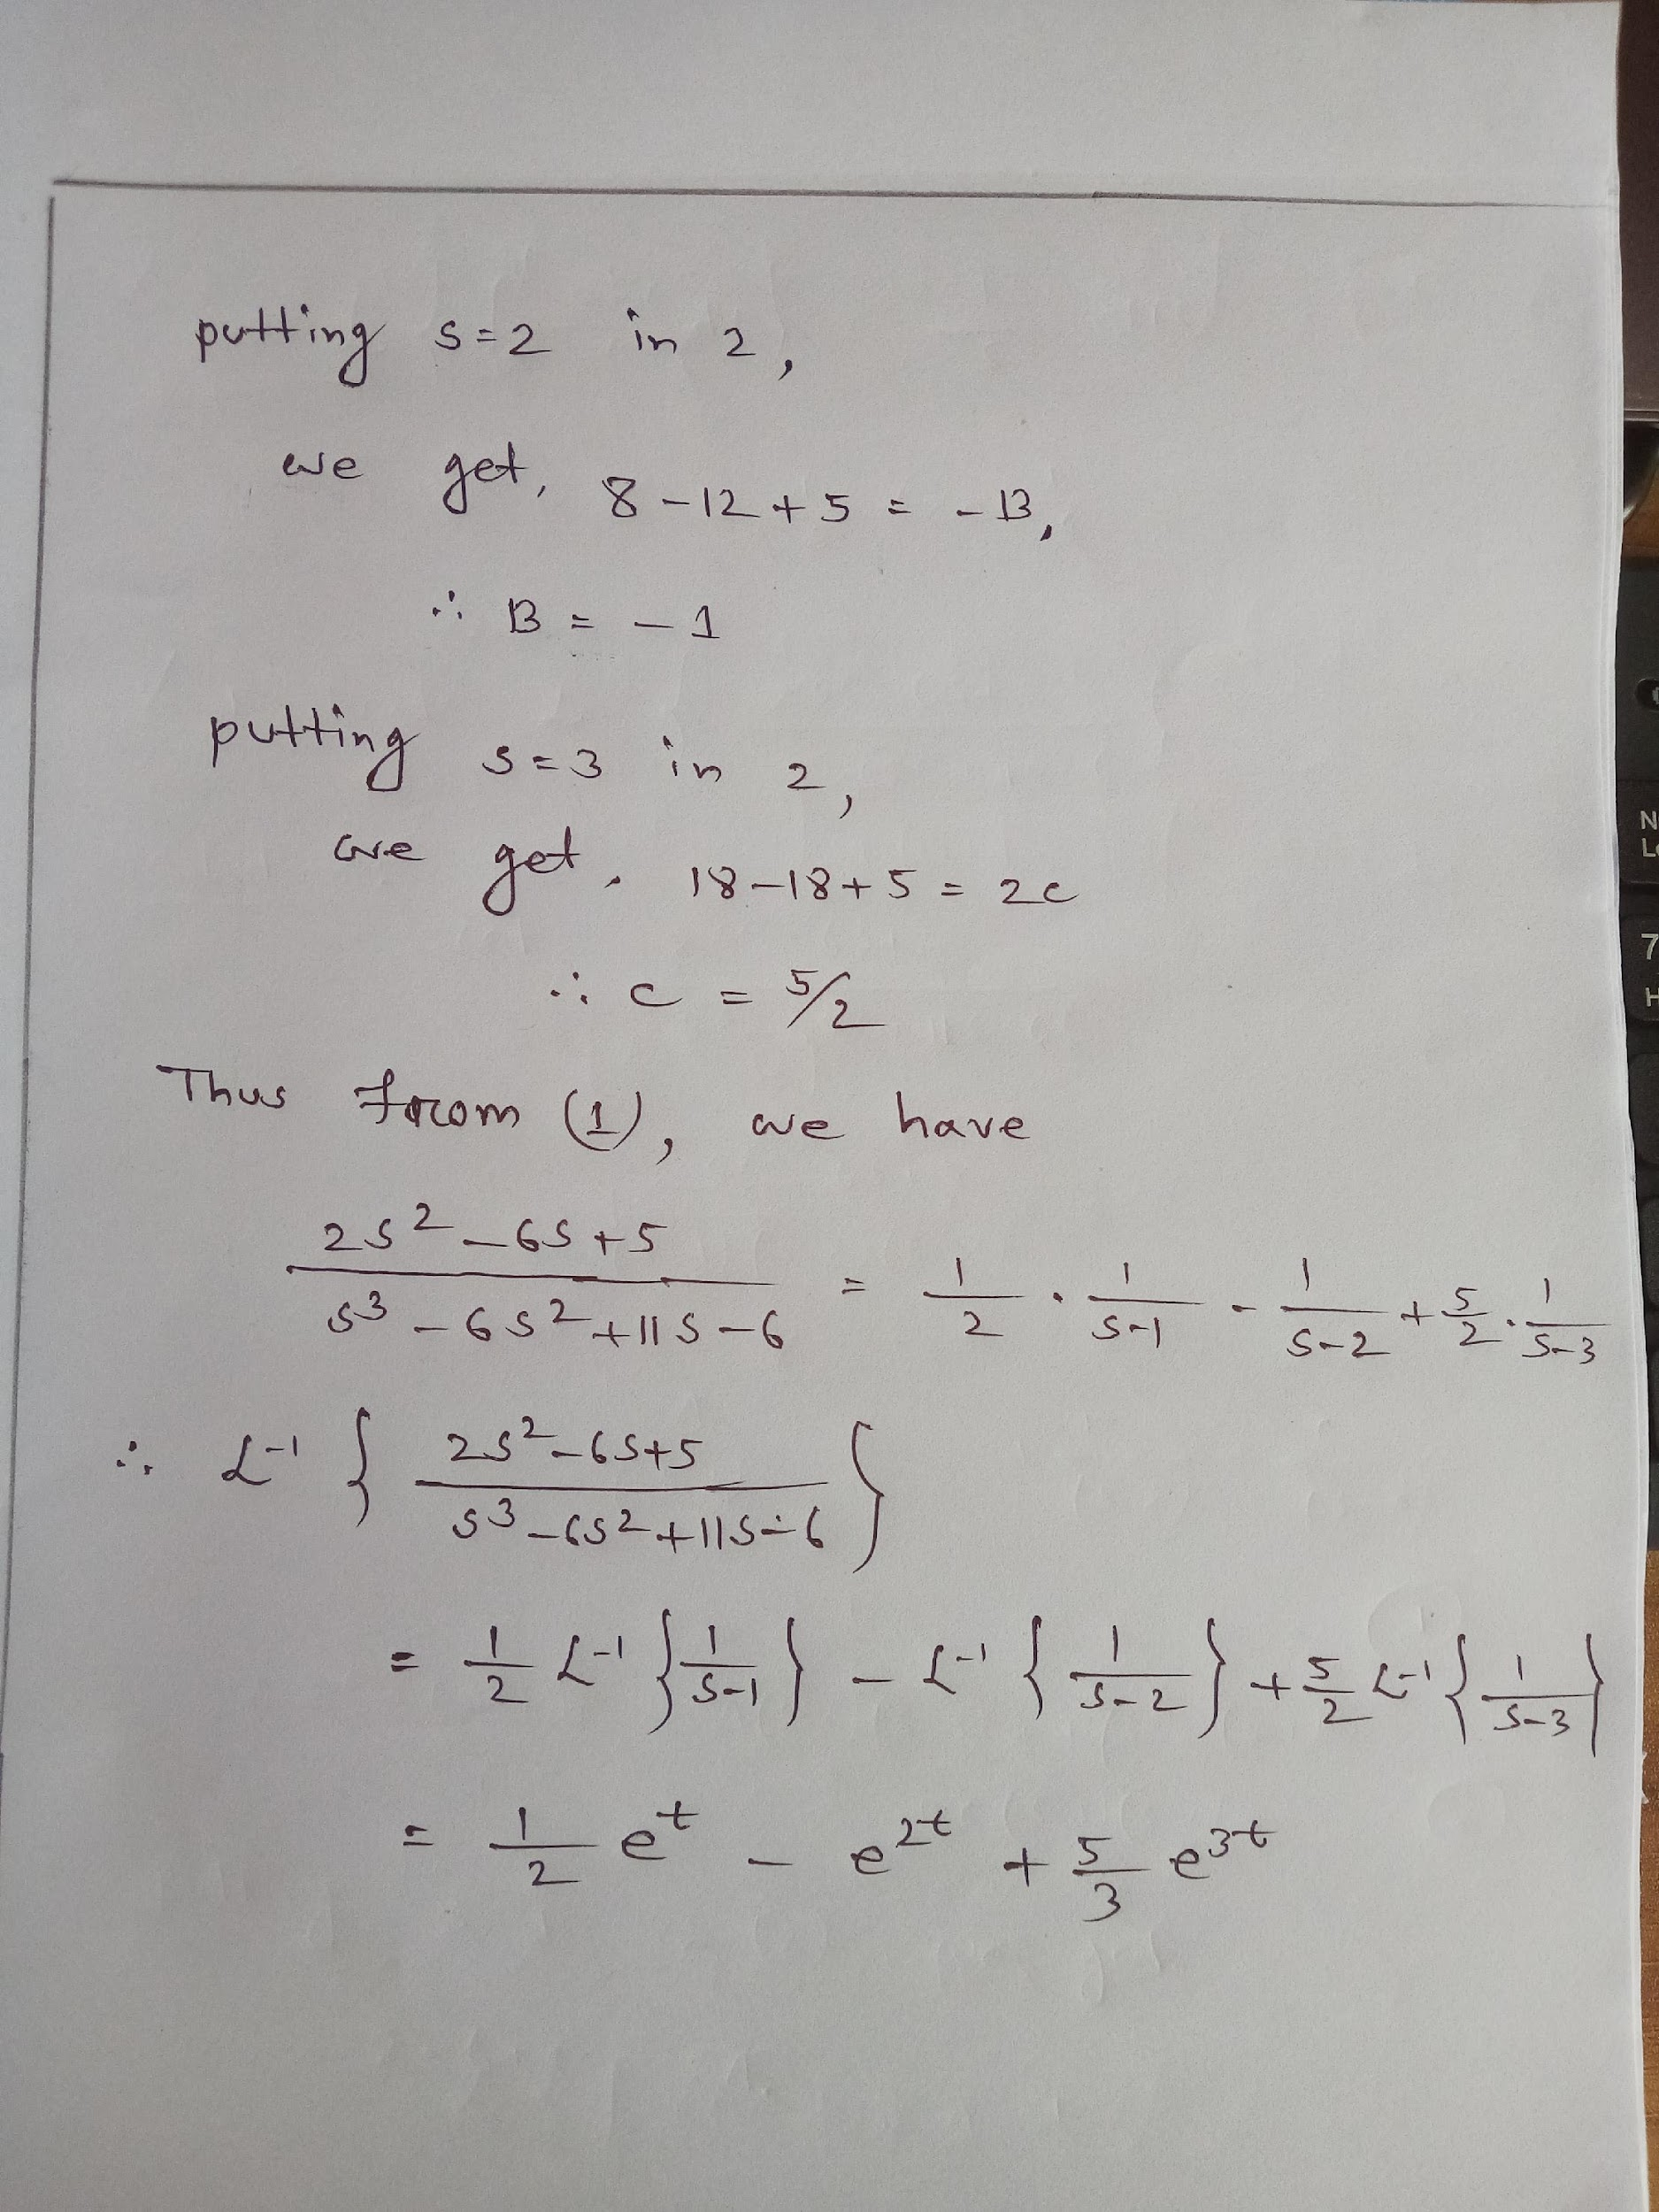 putting s=2 in 2,
we get, 8-12+5 = -B,
∴ B = -1
putting s=3 in 2,
we get, 18-18+5 = 2c
∴ c = 5/2
Thus from (1), we have
2s²-6s+5 / s³-6s²+11s-6 = 1/2 · 1/s-1 - 1/s-2 + 5/2 · 1/s-3
∴ L⁻¹ { 2s²-6s+5 / s³-6s²+11s-6 }
= 1/2 L⁻¹ { 1/s-1 } - L⁻¹ { 1/s-2 } + 5/2 L⁻¹ { 1/s-3 }
= 1/2 e^t - e^2t + 5/3 e^3t
N
L
7
H